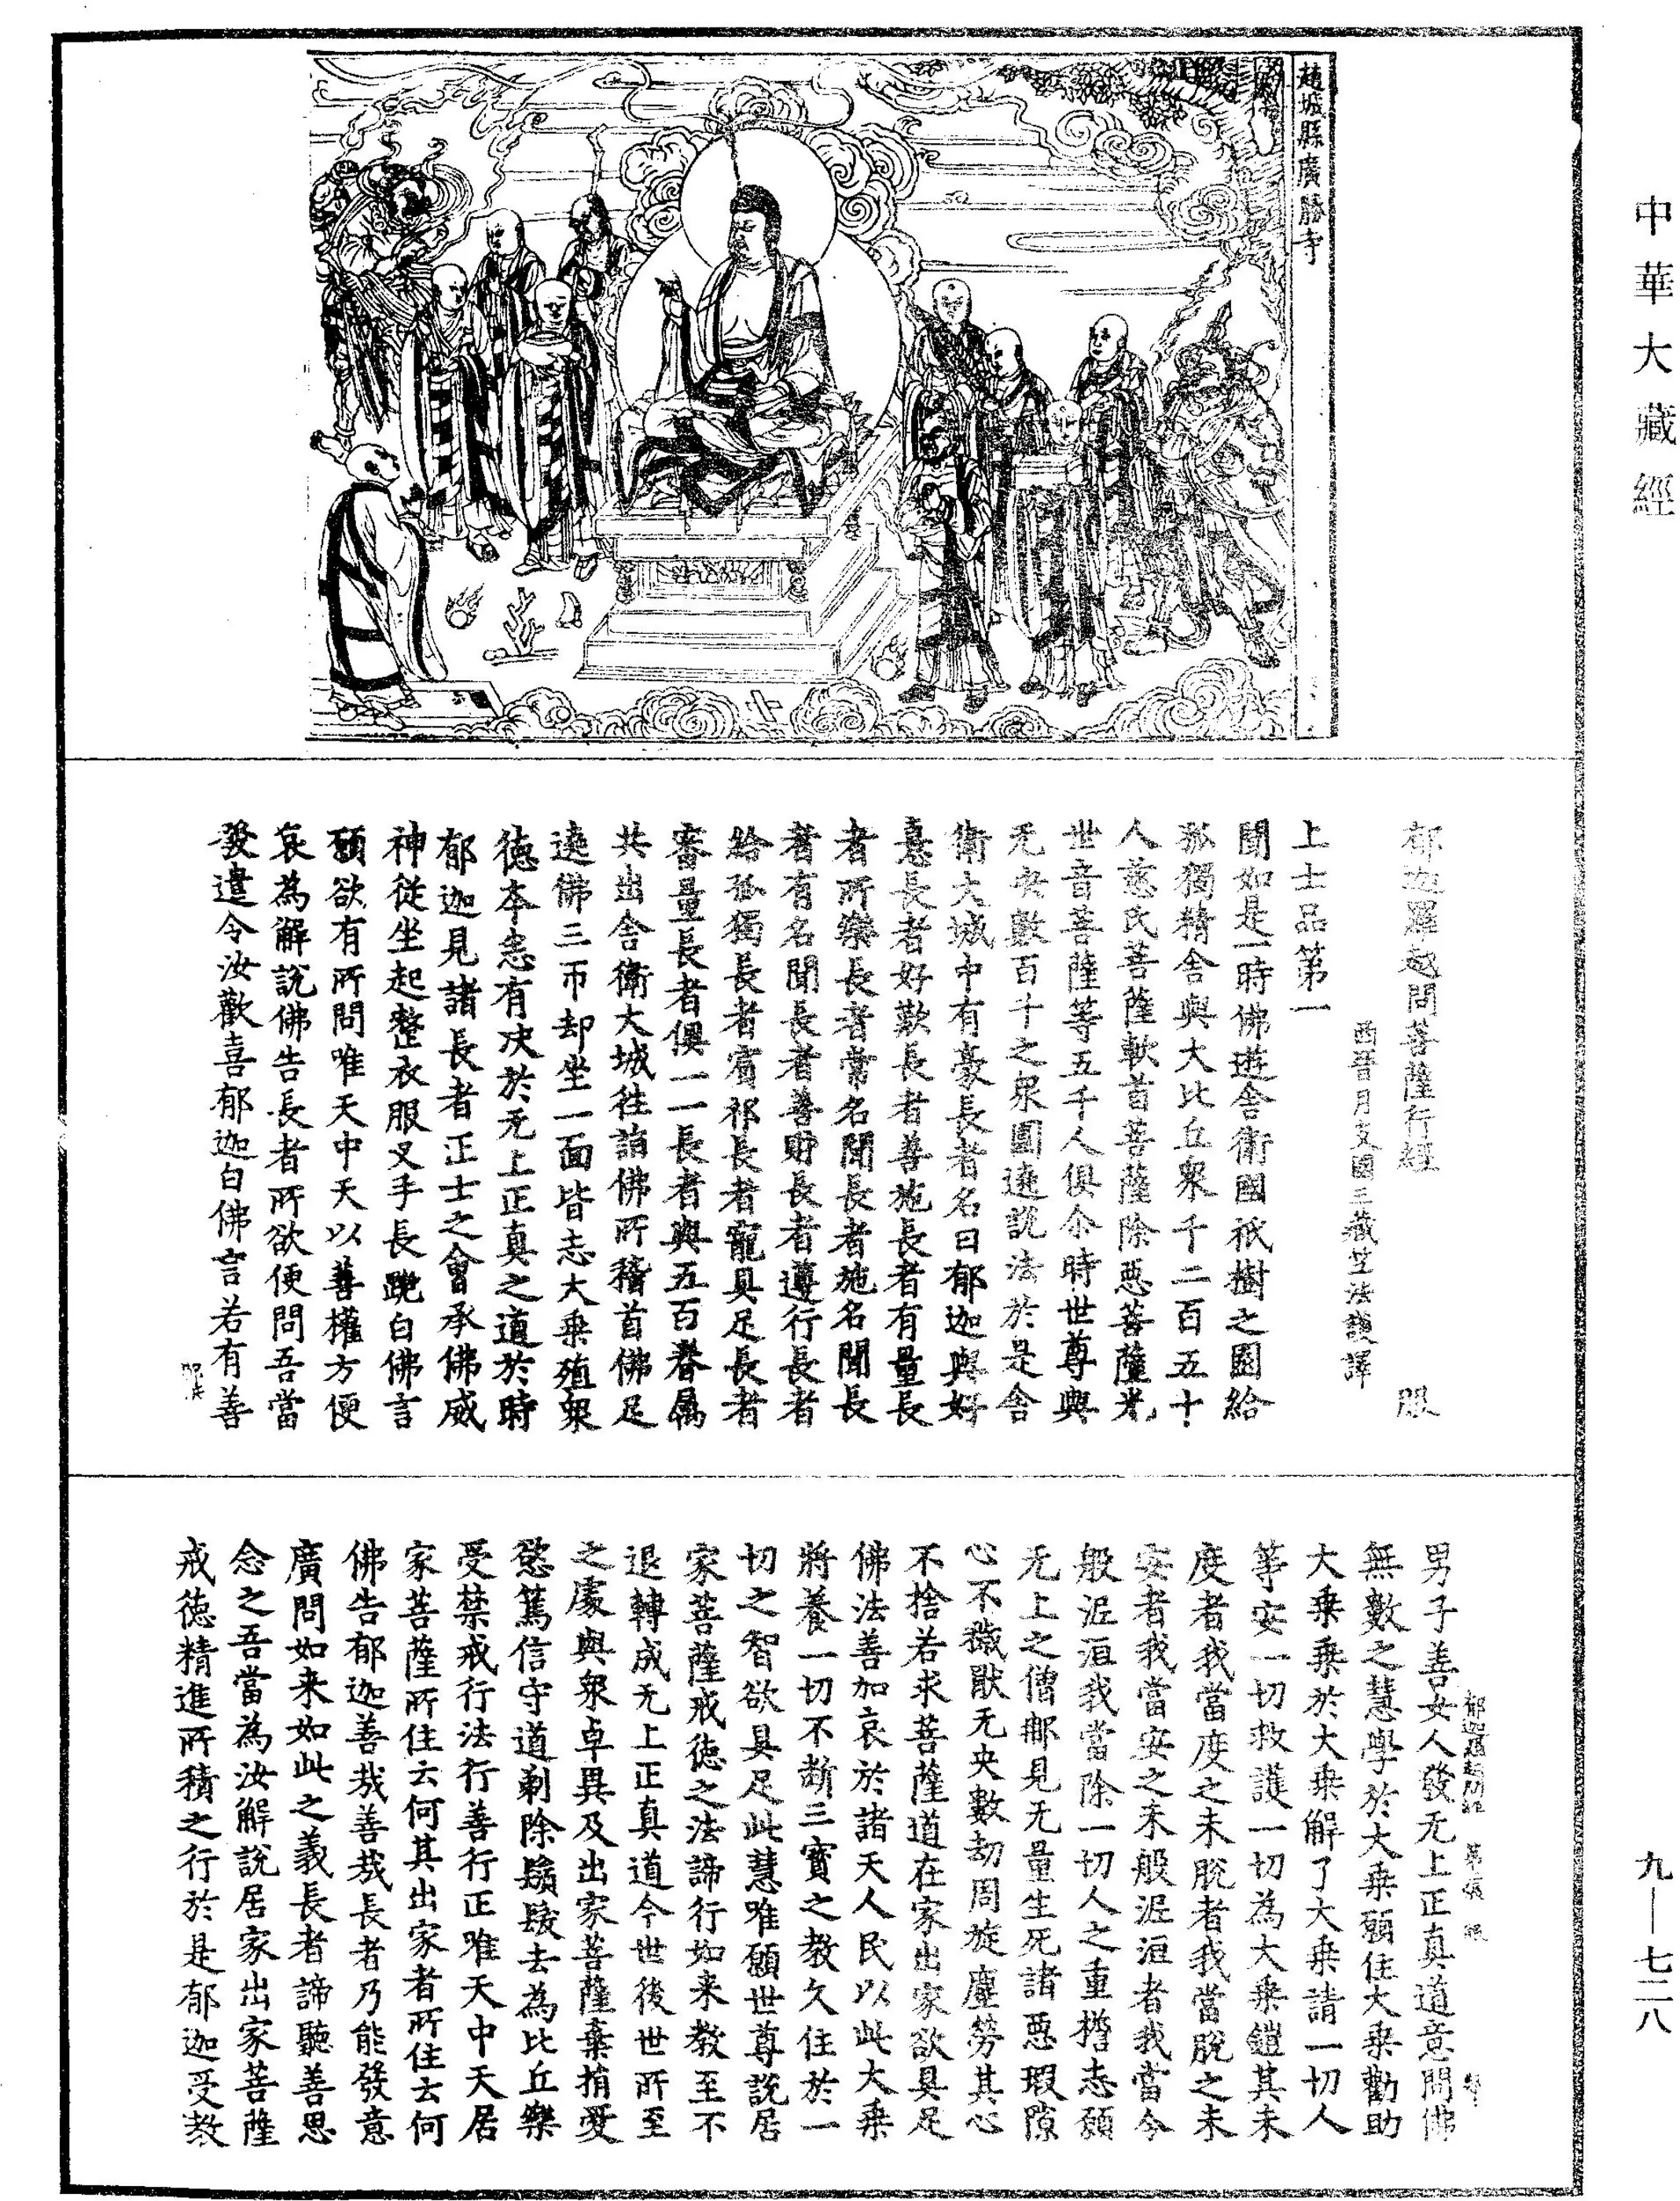 中華大藏經
九—七二八
趙城縣廣勝寺
郁迦羅越問菩薩行經　服
西晉月支國三藏竺法護譯
上士品第一
聞如是一時佛遊舍衛國祇樹之園給
孤獨精舍與大比丘衆千二百五十
人慈氏菩薩軟首菩薩除惡菩薩光
世音菩薩等五千人俱尒時世尊與
无央數百千之衆圍遶說法於是舍
衛大城中有豪長者名曰郁迦與好
意長者好歎長者善施長者有量長
者所樂長者常名聞長者施名聞長
者有名聞長者善財長者遵行長者
給孤獨長者賓祁長者寵具足長者
審量長者俱一一長者與五百眷属
共出舍衛大城往詣佛所稽首佛足
遶佛三帀却坐一面皆志大乗殖衆
徳本悉有决於无上正真之道於時
郁迦見諸長者正士之會承佛威
神從坐起整衣服叉手長跪白佛言
願欲有所問唯天中天以善權方便
哀為解說佛告長者所欲便問吾當
發遣令汝歡喜郁迦白佛言若有善
男子善女人發无上正真道意問佛
無數之慧學於大乗願住大乗勸助
大乗乗於大乗解了大乗請一切人
等安一切救護一切為大乗鎧其未
度者我當度之未脫者我當脫之未
安者我當安之未般泥洹者我當令
般泥洹我當除一切人之重擔志願
无上之僧那見无量生死諸惡瑕隙
心不穢猒无央數劫周旋塵勞其心
不捨若求菩薩道在家出家欲具足
佛法善加哀於諸天人民以此大乗
將養一切不断三寳之教久住於一
切之智欲具足此慧唯願世尊說居
家菩薩戒徳之法諦行如来教至不
退轉成无上正真道今世後世所至
之處與衆卓異及出家菩薩棄捐愛
慾篤信守道剃除鬚髮去為比丘樂
受禁戒行法行善行正唯天中天居
家菩薩所住云何其出家者所住云何
佛告郁迦善哉善哉長者乃能發意
廣問如来如此之義長者諦聽善思
念之吾當為汝解說居家出家菩薩
戒徳精進所積之行於是郁迦受教